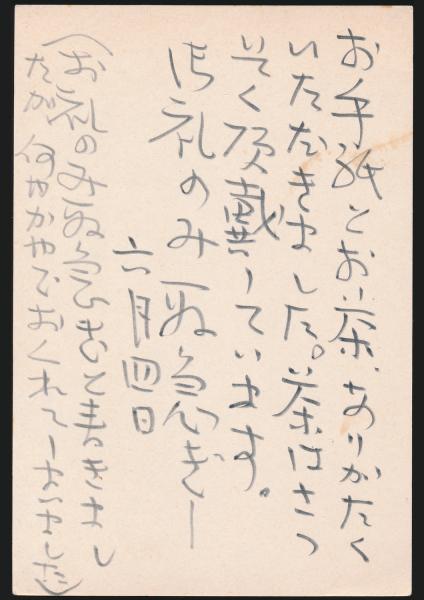 お手紙とお茶、ありがたく
いただきました。茶はさっ
そく頂戴しています。
御礼のみ取急ぎ―
六月四日
(お礼のみ取急ぎと書きまし
たが何やかやでおくれてしまいました)